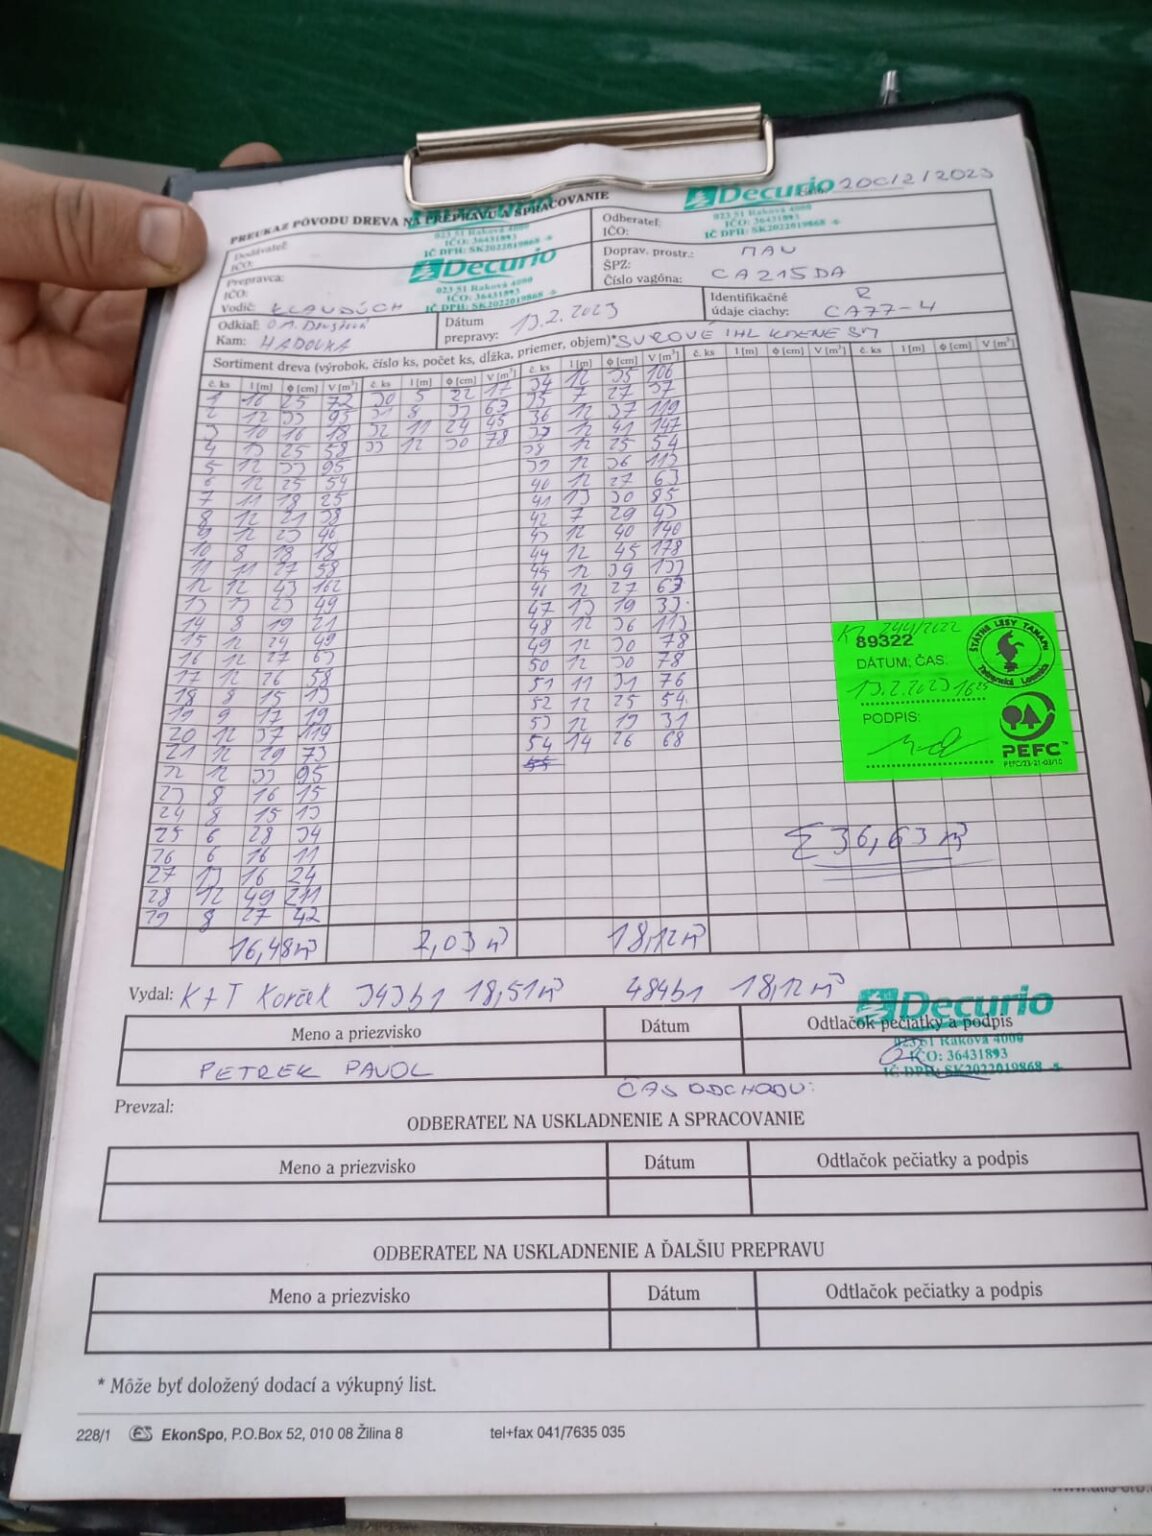 PREUKAZ PÔVODU DREVA NA PREPRAVU A SPRACOVANIE
Decurio 200/2/2023
Dodávateľ:
IČO:
023 51 Raková 4000
IČO: 36431893
IČ DPH: SK2022019868
Odberateľ:
IČO:
023 51 Raková 4000
IČO: 36431893
IČ DPH: SK2022019868
Prepravca:
IČO:
Decurio
023 51 Raková 4000
IČO: 36431893
IČ DPH: SK2022019868
Vodič: KLAUDÚCH
Doprav. prostr.: MAN
ŠPZ:
Číslo vagóna: CA215DA
Odkiaľ: O.M.
Kam: HADOVKA
Dátum
prepravy: 13.2.2023
Identifikačné
údaje ciachy: R
CA77-4
Sortiment dreva (výrobok, číslo ks, počet ks, dĺžka, priemer, objem)* SUROVÉ IHL KMENE SM
č. ks l [m] ϕ [cm] V [m³] č. ks l [m] ϕ [cm] V [m³] č. ks l [m] ϕ [cm] V [m³] č. ks l [m] ϕ [cm] V [m³] č. ks l [m] ϕ [cm] V [m³]
1 10 25 72 30 5 22 17 34 12 35 106
2 12 33 95 31 8 33 63 35 7 27 37
3 10 16 18 32 11 24 45 36 12 37 119
4 13 25 58 33 12 30 78 37 12 41 147
5 12 33 95 38 12 25 54
6 12 25 54 39 12 36 113
7 11 18 25 40 12 27 63
8 12 21 38 41 13 30 85
9 12 23 46 42 7 29 43
10 8 18 18 43 12 40 140
11 11 27 58 44 12 45 178
12 12 43 162 45 12 39 133
13 13 23 49 46 12 27 63
14 8 19 21 47 13 19 33
15 12 24 49 48 12 36 113
16 12 27 63 49 12 30 78
17 12 26 58 50 12 30 78
18 8 15 13 51 11 31 76
19 9 17 19 52 12 25 54
20 12 37 119 53 12 19 31
21 12 29 73 54 14 26 68
22 12 33 95 55
23 8 16 15
24 8 15 13
25 6 28 34
26 6 16 11
27 13 16 24
28 12 49 211
29 8 27 42
89322
DÁTUM, ČAS:
13.2.2023 16²⁵
PODPIS:
ŠTÁTNE LESY TANAPU
Tatranská Lomnica
PEFC™
PEFC/23-21-03/10
Σ 36,63 m³
16,48 m³ 2,03 m³ 18,12 m³
Vydal: KFT Korček 343b1 18,51 m³ 484b1 18,12 m³
Meno a priezvisko Dátum Odtlačok pečiatky a podpis
Decurio
023 51 Raková 4000
IČO: 36431893
IČ DPH: SK2022019868
PETREK PAVOL
ČAS ODCHODU:
Prevzal:
ODBERATEĽ NA USKLADNENIE A SPRACOVANIE
Meno a priezvisko Dátum Odtlačok pečiatky a podpis
ODBERATEĽ NA USKLADNENIE A ĎALŠIU PREPRAVU
Meno a priezvisko Dátum Odtlačok pečiatky a podpis
* Môže byť doložený dodací a výkupný list.
228/1 ES EkonSpo, P.O.Box 52, 010 08 Žilina 8 tel+fax 041/7635 035